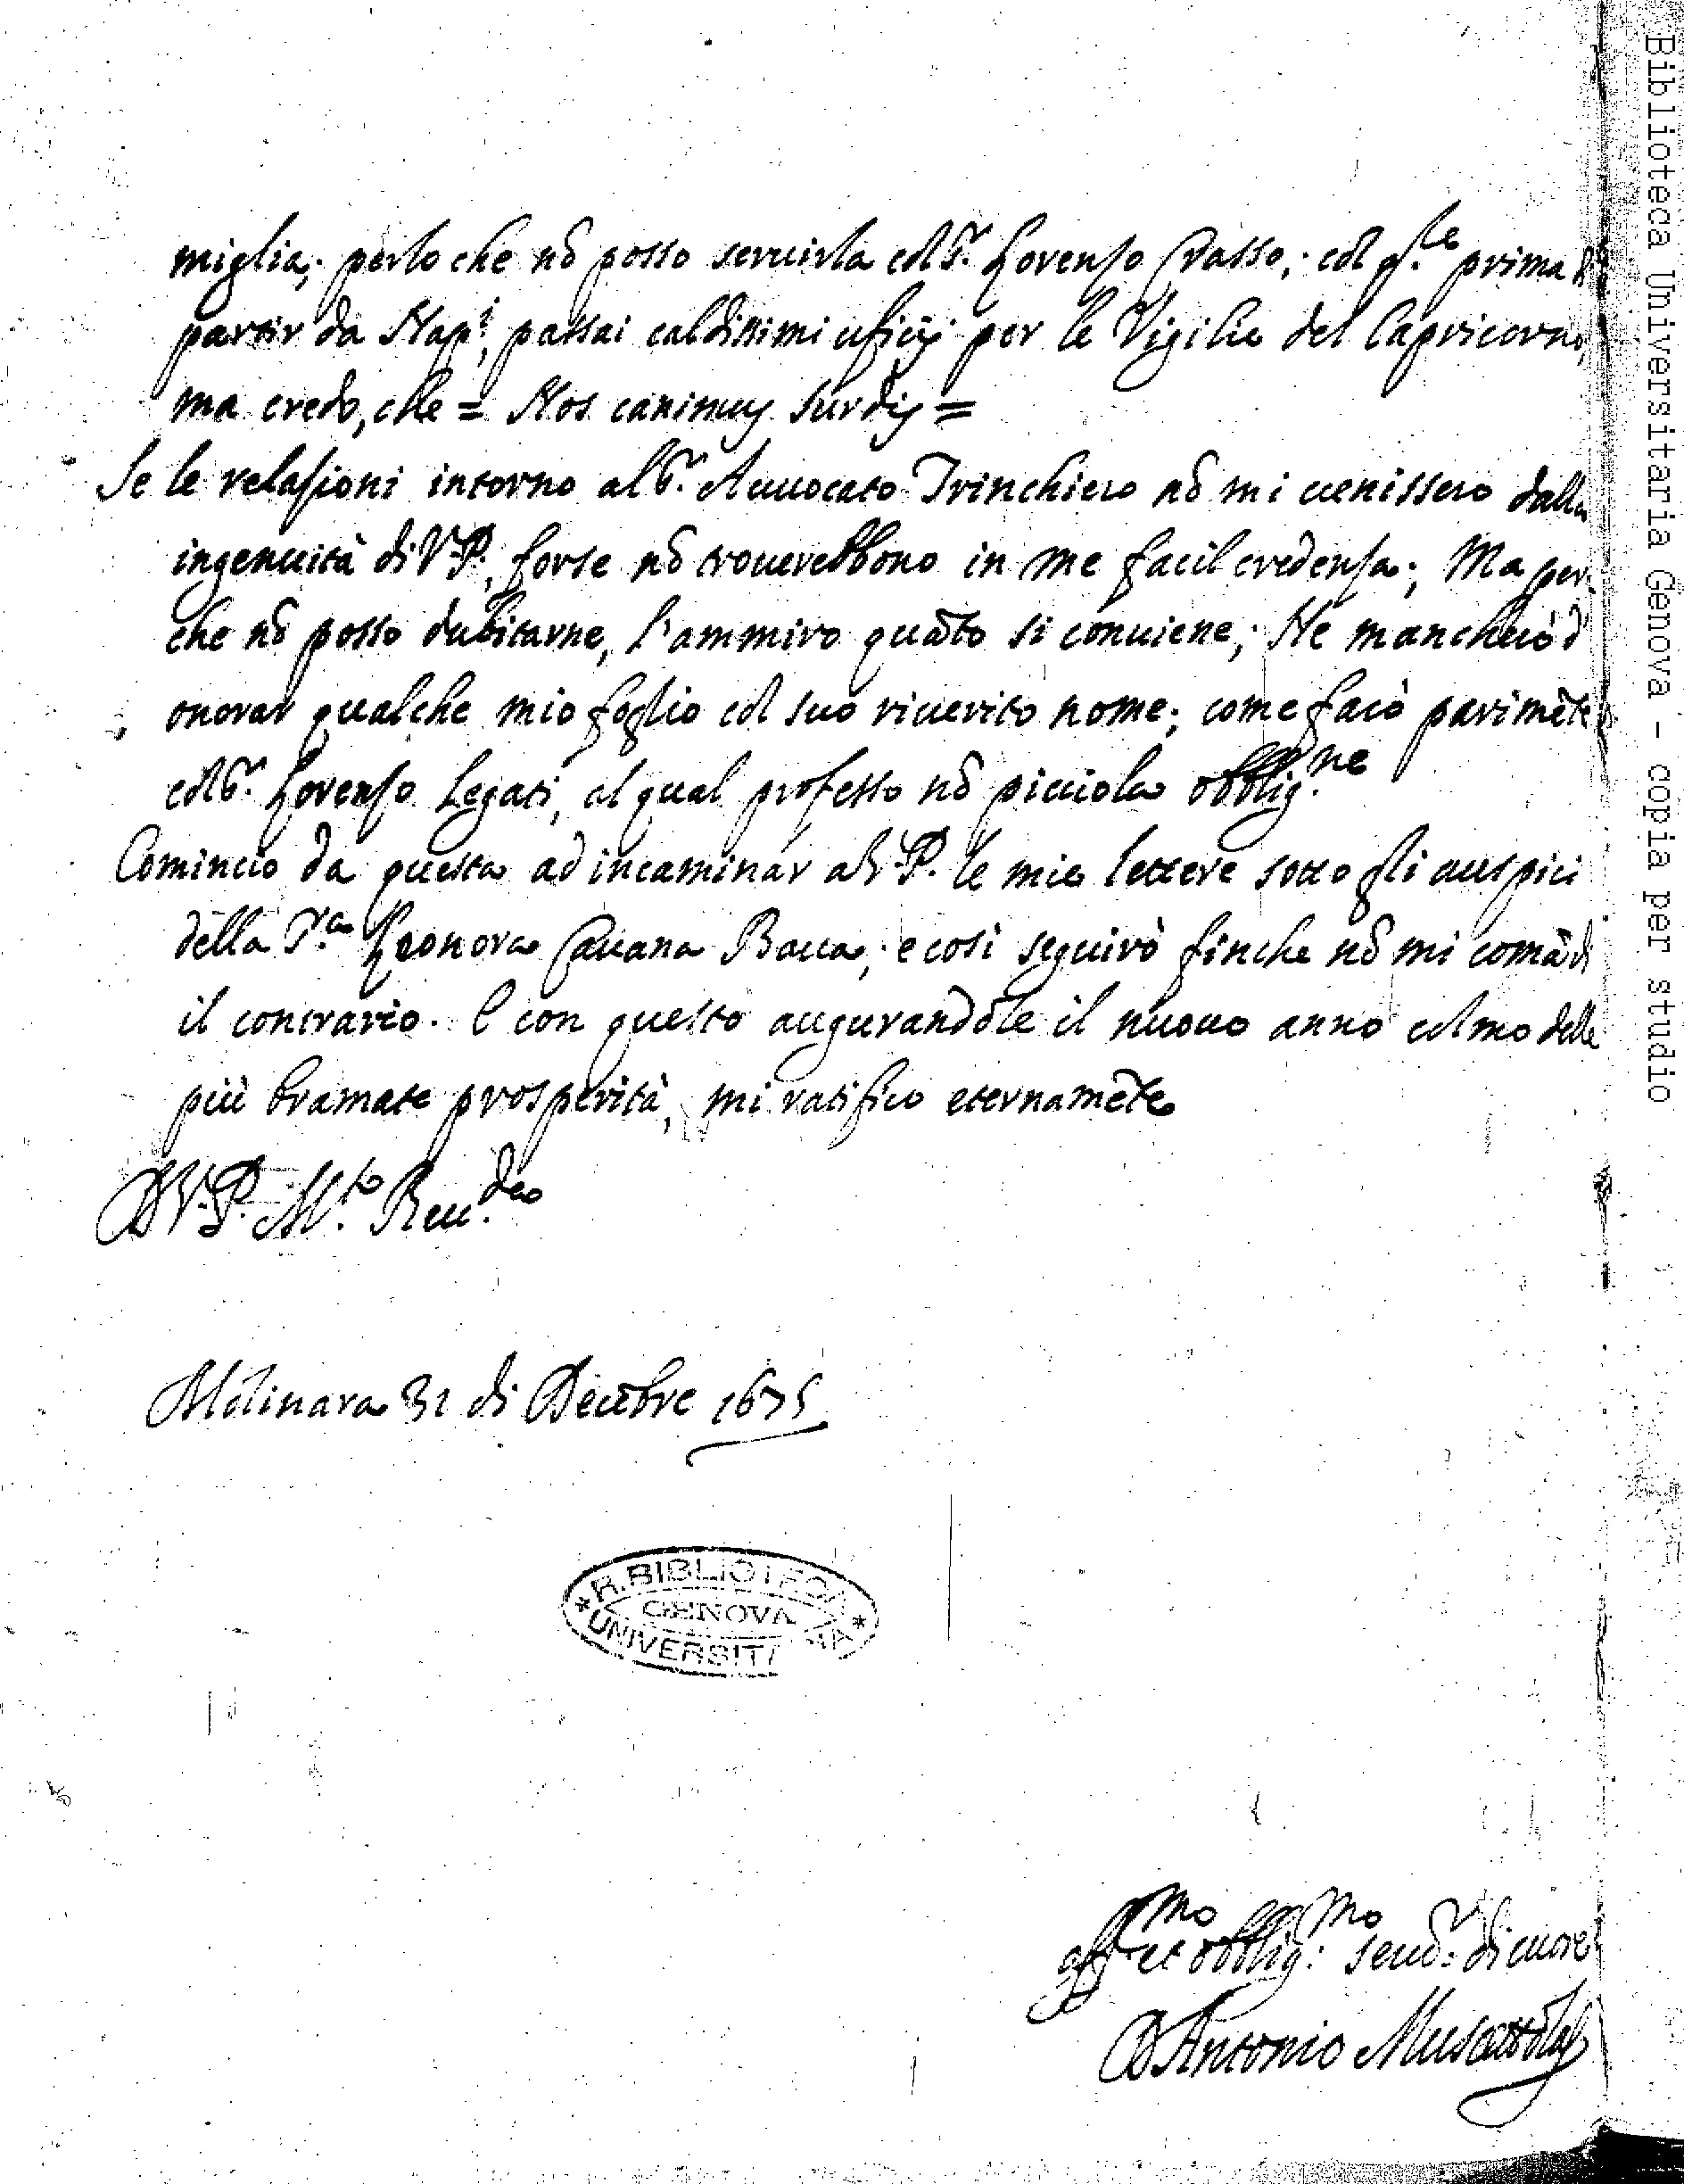 miglia; perlo che nō posso seruirla col S.r Lorenzo Crasso; col q.le prima di
partir da Nap.i, passai caldissimi uficij per le Vigilie del Capricorno,
ma credo, che = Nos canimus surdis =
Se le relazioni intorno al S.r Auuocato Trinchiero nō mi uenissero dalla
ingenuità di V.P., forse nō trouerebbono in me facil credenza; Ma per-
che nō posso dubitarne, l'ammiro quāto si conuiene; Ne mancherò d'
onorar qualche mio foglio col suo riuerito nome; come farò parimēte
col S.r Lorenzo Legati, al qual professo nō picciola obblig.ne
Comincio da questa ad incaminar a V.P. le mie lettere sotto gli auspici
della S.ra Leonora Cauana Bacca; e così seguirò finche nō mi comādi
il contrario. E con questo augurandole il nuouo anno colmo delle
più bramate prosperità, mi ratifico eternamēte
D V.P. M.to Reu.da
Molinara 31 di Decēbre 1675
R. BIBLIOTECA
GENOVA
UNIVERSITARIA
aff.mo et obblig.mo seru.r di cuore
D Antonio Muscettola
Biblioteca Universitaria Genova - copia per studio